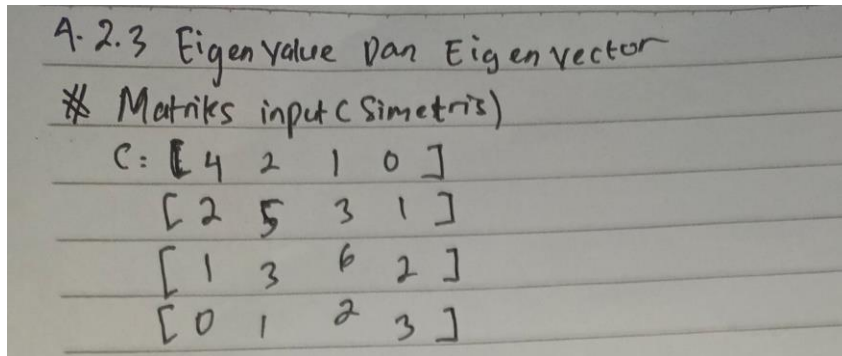 4.2.3 Eigen Value Dan Eigen vector
# Matriks input (Simetris)
C: [ 4 2 1 0 ]
[ 2 5 3 1 ]
[ 1 3 6 2 ]
[ 0 1 2 3 ]